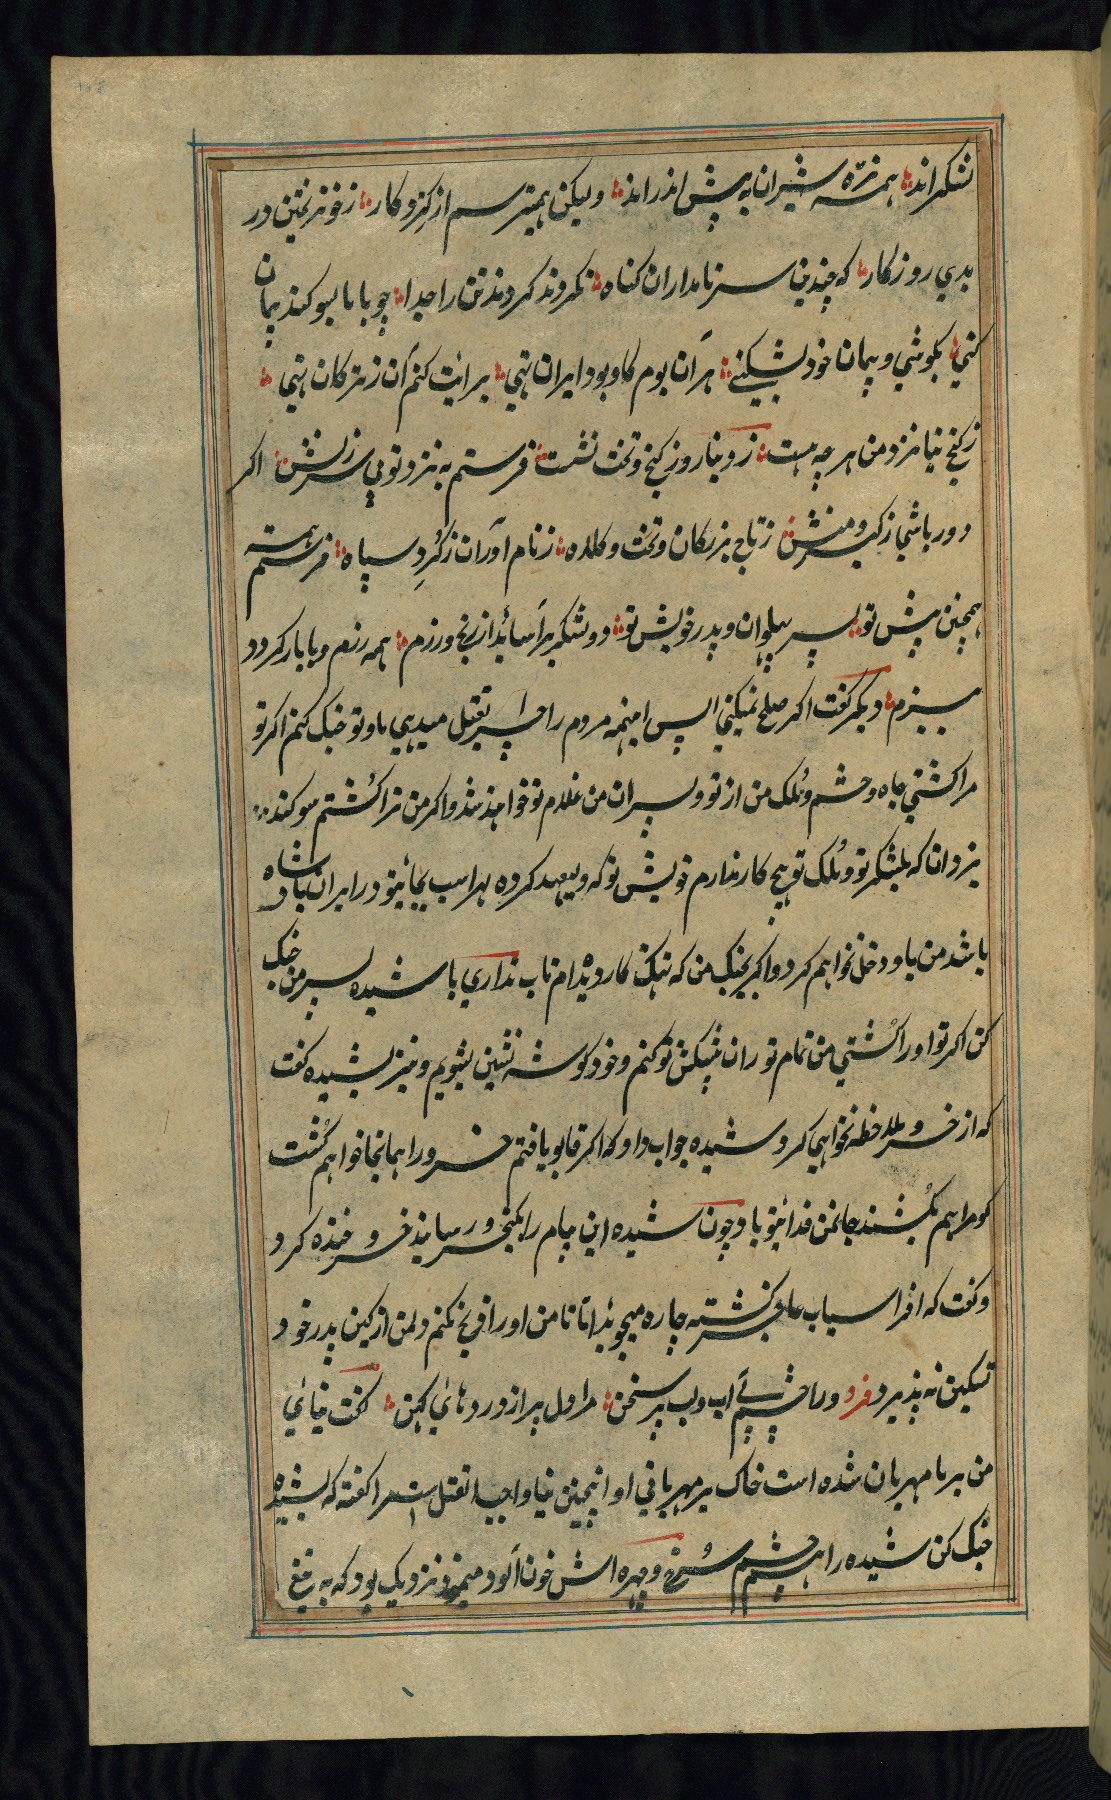 لشکراند همه نرّه شیران به پیش اندراند ولیکن همیترسم از کردکار ز خونریختن در
بدی روزکار که چندین سر نامداران کناه نکردند کردند تن را جدا چو با ما بسوکند پیمان
کنی بکوشی و پیمان خود نشکنی هر آن بوم کاو بود ایران تهی برایت کنم آن ز ترکان تهی
ز کنج نیا نزد من هر چه هست ز دینار وز کنج و تخت نشست فرستم به نزد تو بی سرزنش اکر
دور باشی ز کبر و منش ز تاج بزرکان و تخت و کلاه ز نام آوران ز کُردِ سپاه فرستم
همچنین پیش تو پسر پهلوان و پدر خویش تو دو لشکر بر آساید از رنج و رزم همه رزم و با بار کردد
ببزم دیکر کفت اکر صلح نمیکنی پس اینهمه مردم را چرا بقتل میدهی با تو جنک کنم اکر تو
مرا کشتی جاه و حشم و مُلک من از تو و پسران من غلام تو خواهند شد و اکر من ترا کشتم سوکند
یزدان که بلشکر تو و مُلک تو هیچ کار ندارم خویش تو که ولیعهد کرده لهراسب بجای تو در ایران پادشاه
باشد من باو دخل نخواهم کرد و اکر بجنک من که نهنک کار دیده‌ام تاب نداری با شیده پسر من جنک
کن اکر تو او را کُشتی من تمام توران پیشکش تو کنم و خود کوشه نشین بشویم و نیز بشیده کفت
که از خسرو ملاحظه نخواهی کرد شیده جواب داد که اکر قابو یافتم خسرو را همانجا خواهم کُشت
کو مرا هم بکُشند جان من فدای تو باد چون شیده این پیام را بکیخسرو رسانید خسرو خنده کرد
و کفت که افراسیاب عاجز کشته چاره میجوید اما تا من او را ذبح نکنم دل من از کین پدر خود
تسکین نه پذیرد فرد ورا چشم بی آب و لب پر سخن مرا دل پر از دردهای کهن کفت نیای
من بر ما مهربان شده است خاک بر مهربانی او اینچنین نیا واجب القتل است مرا کفته که بشیده
جنک کن شیده را بچشم سُرخ و چهره‌اش خون آلود مینمود نزدیک بود که به تیغ